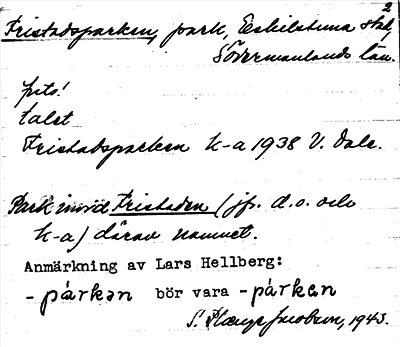 2
Fristadsparken, park, Eskilstuna stad,
Södermanlands län.
frits!
talet
Fristadsparken k-a 1938 V. Dale.
Park invid Fristaden (jfr. d.o. och
k-a) därav namnet.
Anmärkning av Lars Hellberg:
-párkən bör vara -párken
S. 1943.